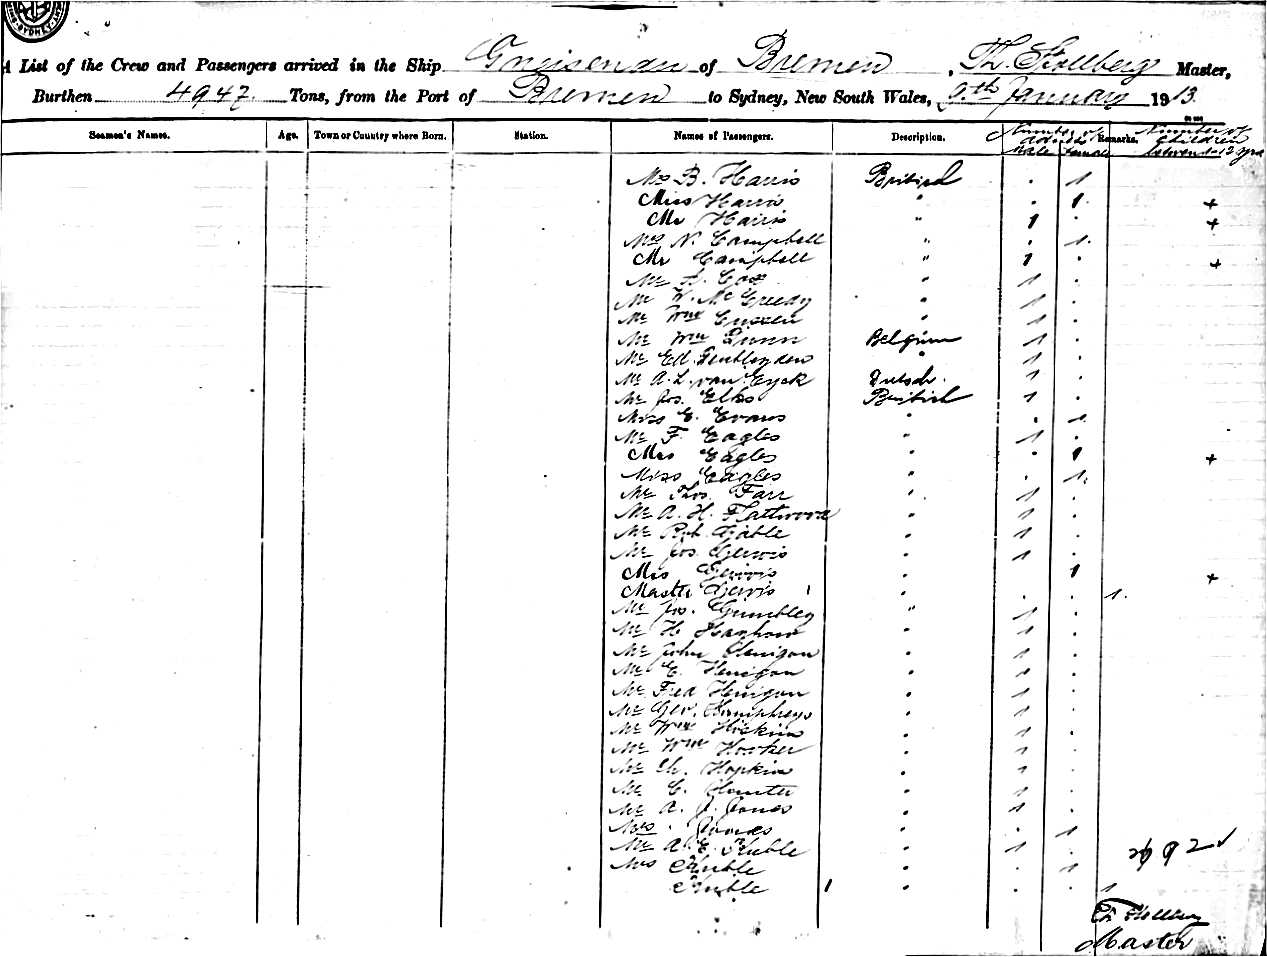 SYDNEY
A List of the Crew and Passengers arrived in the Ship Gneisenau of Bremen, Th. Stollberg Master,
Burthen 4947 Tons, from the Port of Bremen to Sydney, New South Wales, 9th January 1913
Seamen's Names. Age. Town or Country where Born. Station. Names of Passengers. Description. Number of Adults Male Female Remarks. Number of Children between 1-12 yrs
Mrs B. Harris British . 1
Miss Harris " . 1 +
Mr Harris " 1 . +
Mrs N. Campbell " . 1
Mr Campbell " 1 . +
Mr Cox " 1 .
Mr W. McCreedy " 1 .
Mr Wm " 1 .
Mr Wm Belgium 1 .
Mr Ed. " 1 .
Mr A. L. van Eyck Dutsch. 1 .
Mr Jos. Elks British 1 .
Miss E. Evans " . 1
Mr F. Eagles " 1 .
Mrs Eagles " . 1 +
Miss Eagles " . 1
Mr Thos. Farr " 1 .
Mr A. H. Flattwood " 1 .
Mr Rob. Gable " 1 .
Mr Jos. Gervis " 1 .
Mrs Gervis " . 1 +
Master Gervis 1 " . . 1.
Mr Jos. Grimbley " 1 .
Mr H " 1 .
Mr John Henigan " 1 .
Mr E. Henigan " 1 .
Mr Fred Henigan " 1 .
Mr Geo. Humphreys " 1 .
Mr Wm Hoskins " 1 .
Mr Wm Hooker " 1 .
Mr Ch. Hopkin " 1 .
Mr C. Hunter " 1 .
Mr A. J. Jones " 1 .
Mrs Jones " . 1
Mr A. E. Kuble " 1 .
Mrs Kuble " . 1
Kuble 1 " . . 1
Th Stollberg
Master